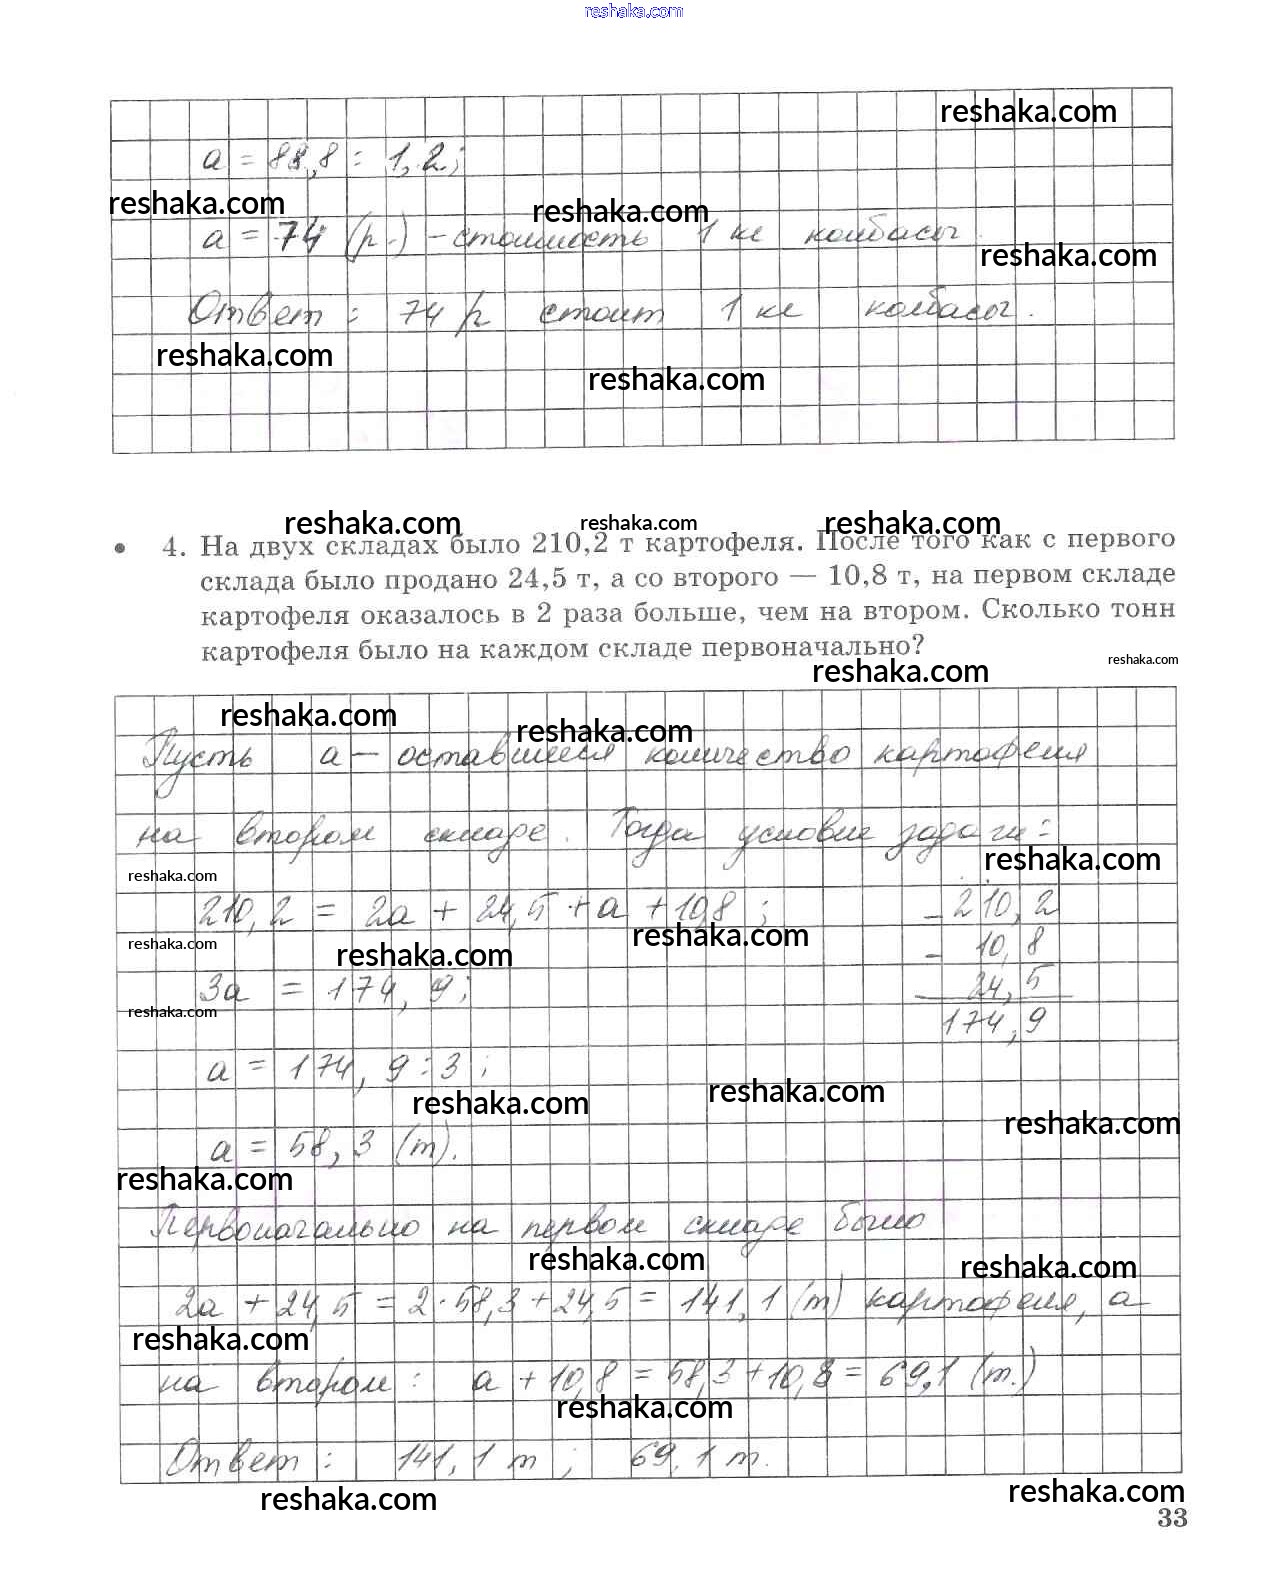 reshaka.com
reshaka.com
a = 88,8 : 1,2;
reshaka.com
reshaka.com
a = 74 (р.) - стоимость 1 кг колбасы.
reshaka.com
Ответ : 74 р стоит 1 кг колбасы.
reshaka.com
reshaka.com
reshaka.com
reshaka.com
reshaka.com
• 4. На двух складах было 210,2 т картофеля. После того как с первого
склада было продано 24,5 т, а со второго — 10,8 т, на первом складе
картофеля оказалось в 2 раза больше, чем на втором. Сколько тонн
картофеля было на каждом складе первоначально?
reshaka.com
reshaka.com
reshaka.com
reshaka.com
Пусть а — оставшееся количество картофеля
на втором складе. Тогда условие задачи:
reshaka.com
reshaka.com
210,2 = 2а + 24,5 + а + 10,8 ;
- 210,2
reshaka.com
reshaka.com
reshaka.com
- 10,8
3а = 174,9;
24,5
reshaka.com
174,9
а = 174,9 : 3 ;
reshaka.com
reshaka.com
reshaka.com
а = 58,3 (т).
reshaka.com
Первоначально на первом складе было
reshaka.com
reshaka.com
2а + 24,5 = 2 · 58,3 + 24,5 = 141,1 (т) картофеля, а
reshaka.com
на втором : а + 10,8 = 58,3 + 10,8 = 69,1 (т.)
reshaka.com
Ответ : 141,1 т ; 69,1 т.
reshaka.com
reshaka.com
33